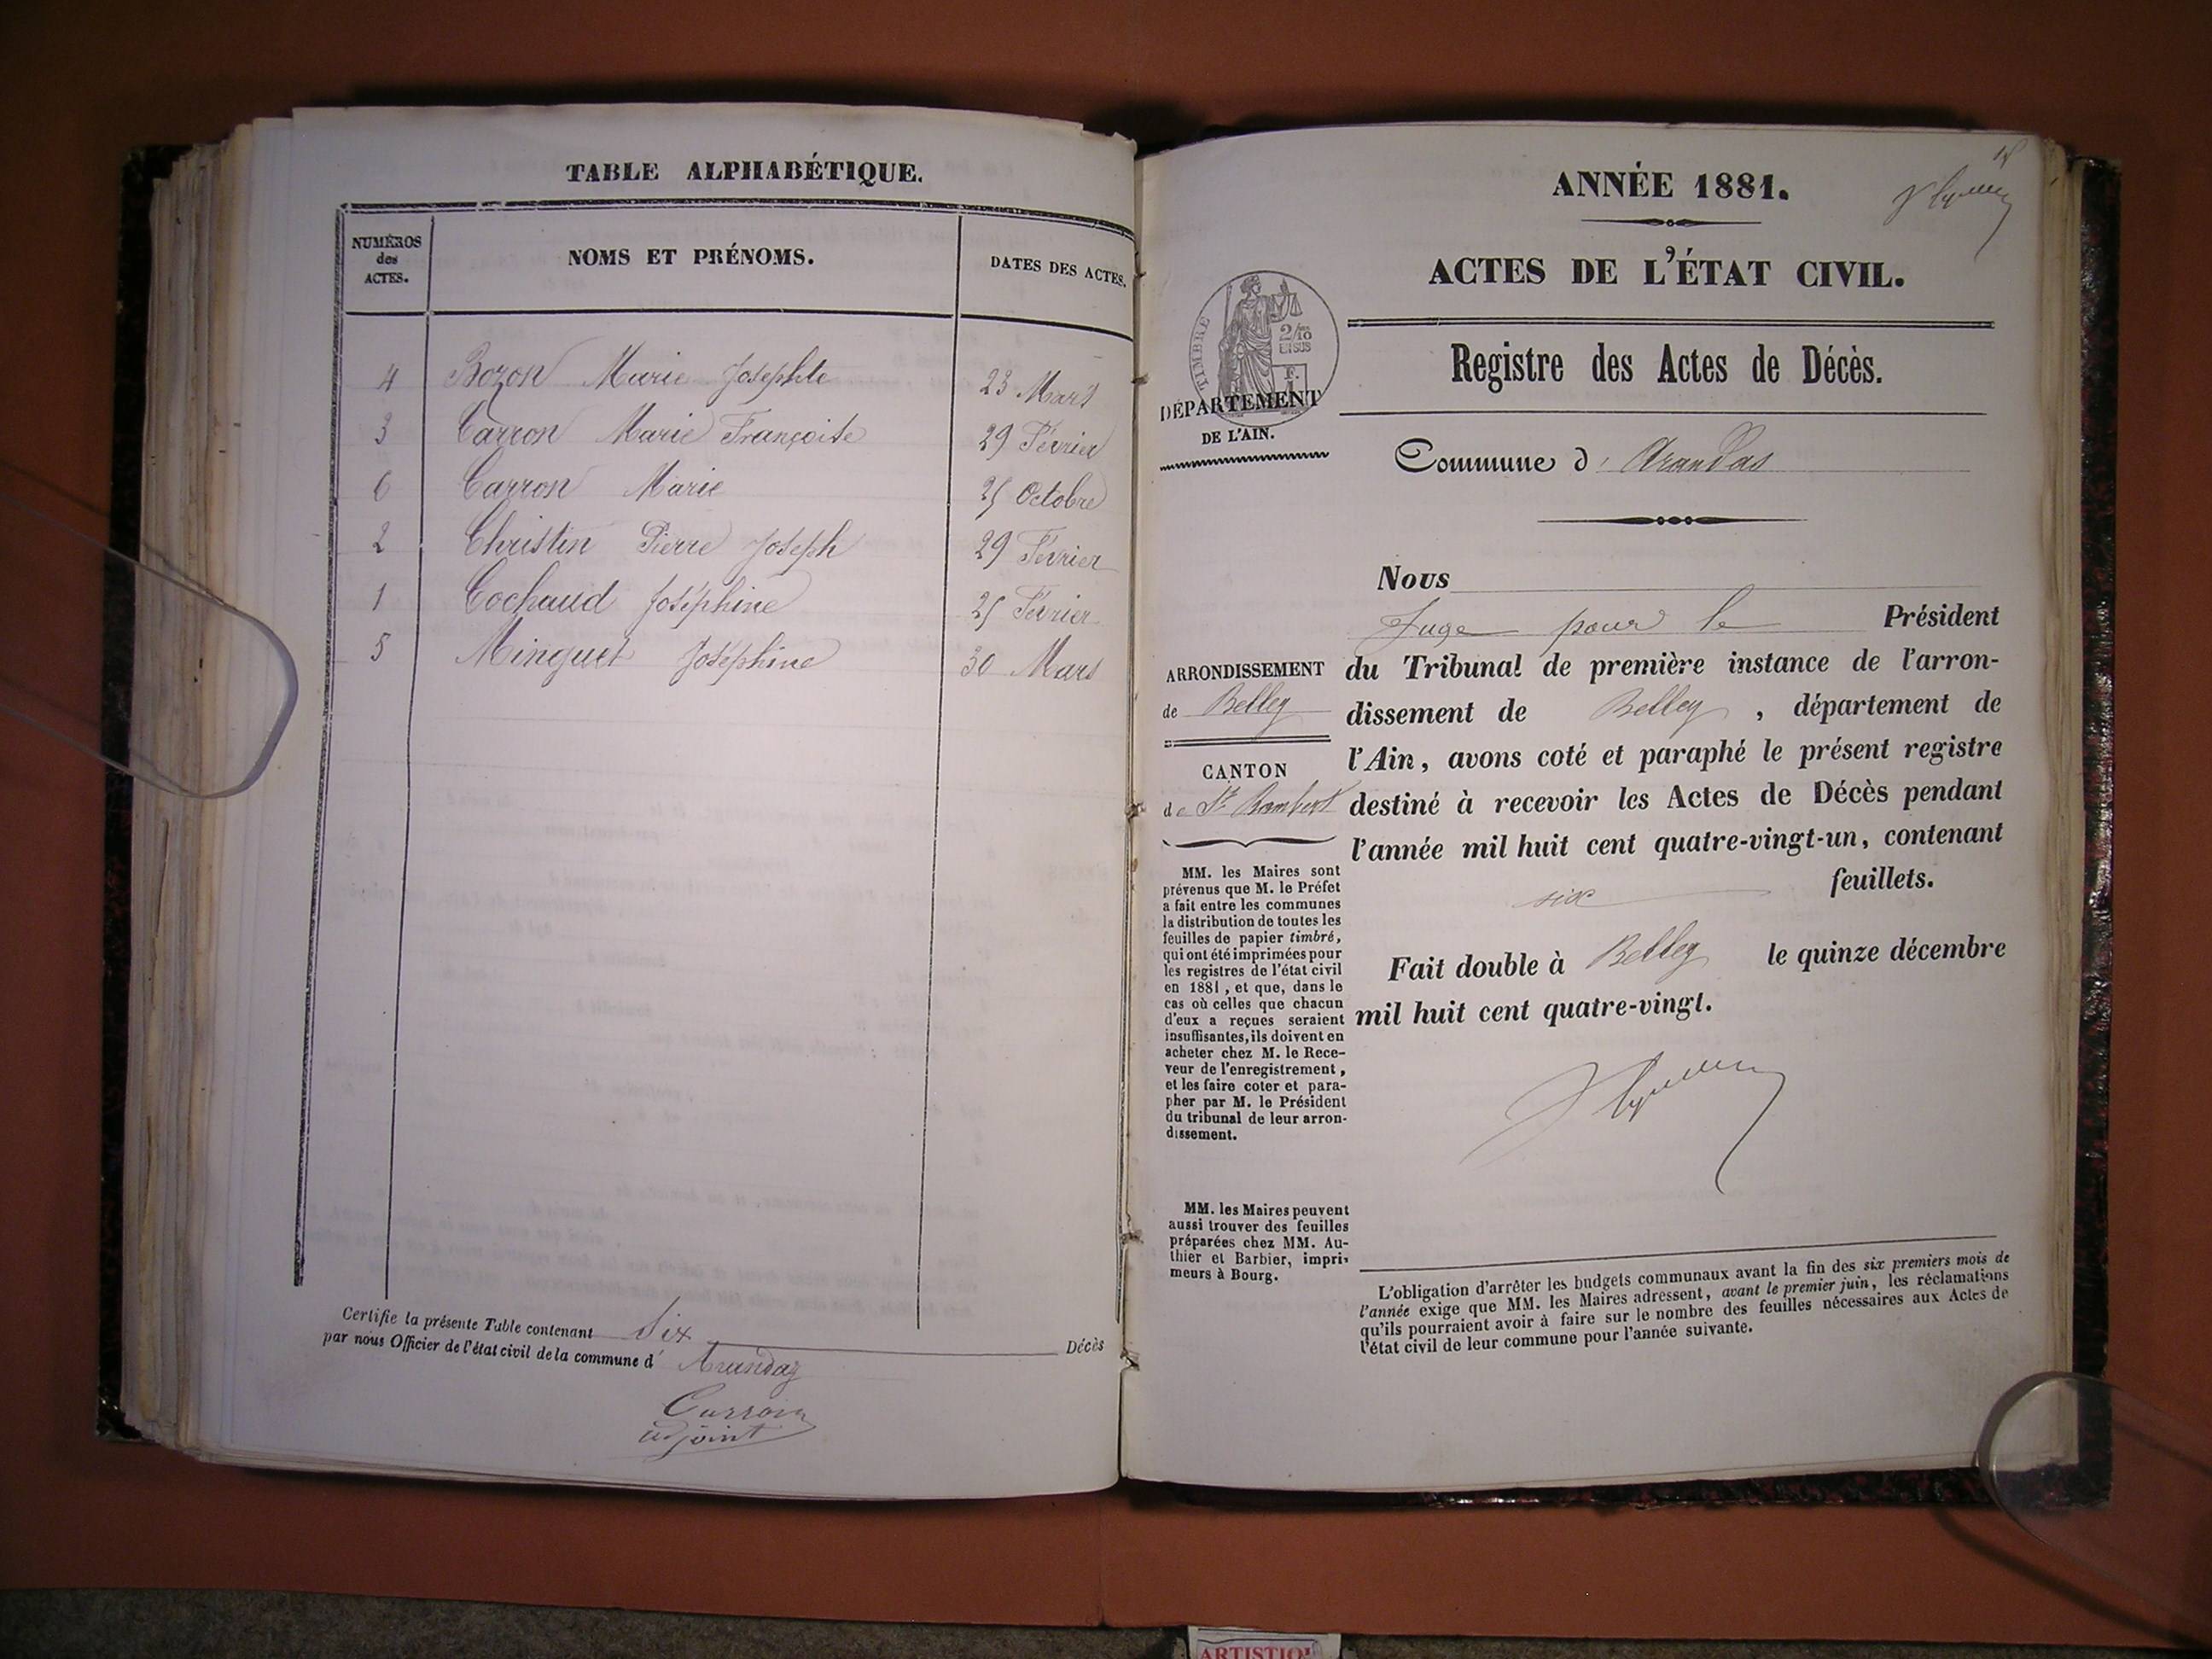 TABLE ALPHABÉTIQUE.
NUMÉROS
des
ACTES.
NOMS ET PRÉNOMS.
DATES DES ACTES.
4 Bozon Marie Josephte 23 Mars
3 Carron Marie Françoise 29 Février
6 Carron Marie 25 Octobre
2 Christin Pierre Joseph 29 Février
1 Cochaud Joséphine 25 Février
5 Minguet Joséphine 30 Mars
Certifie la présente Table contenant Six Décès
par nous Officier de l'état civil de la commune d' Arandas
adjoint
ANNÉE 1881.
ACTES DE L'ÉTAT CIVIL.
Registre des Actes de Décès.
TIMBRE
2/10
EN SUS
F.
DÉPARTEMENT
DE L'AIN.
Commune d' Arandas
Nous
Juge pour le Président
du Tribunal de première instance de l'arron-
dissement de Belley, département de
l'Ain, avons coté et paraphé le présent registre
destiné à recevoir les Actes de Décès pendant
l'année mil huit cent quatre-vingt-un, contenant
six feuillets.
Fait double à Belley le quinze décembre
mil huit cent quatre-vingt.
ARRONDISSEMENT
de Belley
CANTON
de St Rambert
MM. les Maires sont
prévenus que M. le Préfet
a fait entre les communes
la distribution de toutes les
feuilles de papier timbré,
qui ont été imprimées pour
les registres de l'état civil
en 1881, et que, dans le
cas où celles que chacun
d'eux a reçues seraient
insuffisantes, ils doivent en
acheter chez M. le Rece-
veur de l'enregistrement,
et les faire coter et para-
pher par M. le Président
du tribunal de leur arron-
dissement.
MM. les Maires peuvent
aussi trouver des feuilles
préparées chez MM. Au-
thier et Barbier, impri-
meurs à Bourg.
L'obligation d'arrêter les budgets communaux avant la fin des six premiers mois de
l'année exige que MM. les Maires adressent, avant le premier juin, les réclamations
qu'ils pourraient avoir à faire sur le nombre des feuilles nécessaires aux Actes de
l'état civil de leur commune pour l'année suivante.